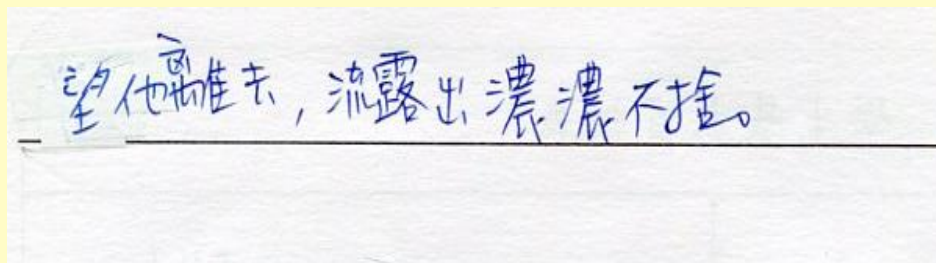 望他離去，流露出濃濃不捨。